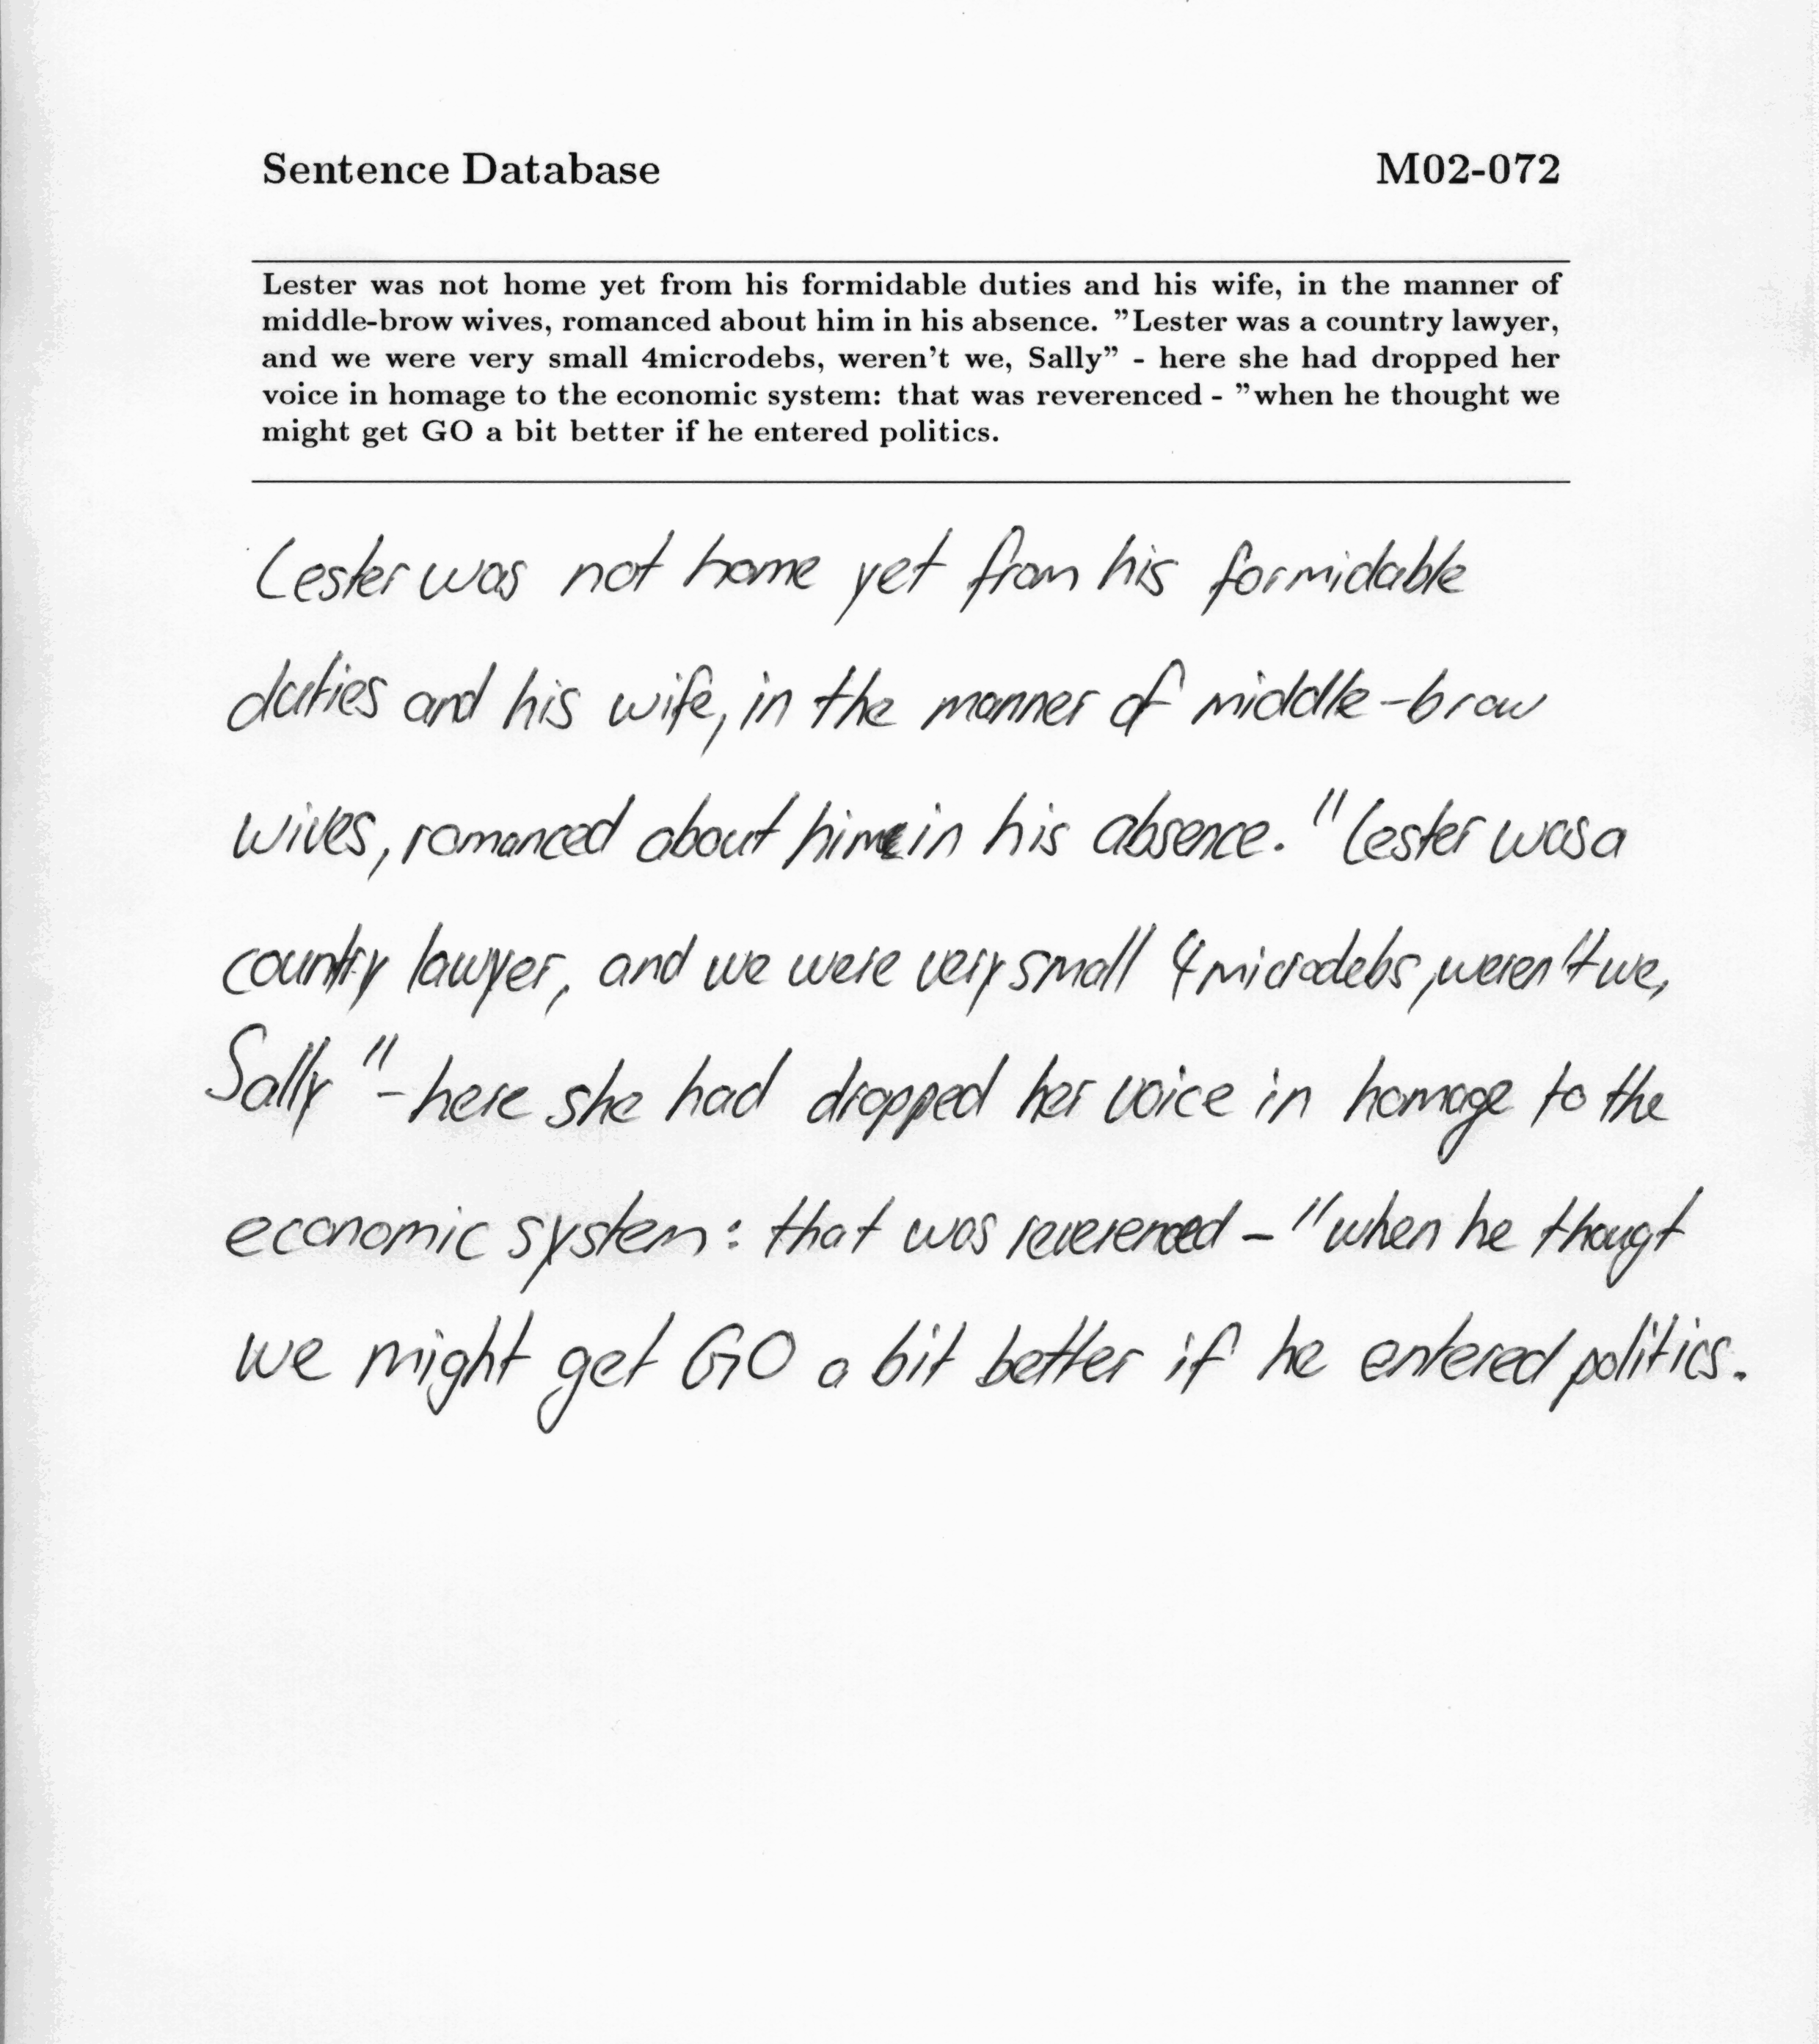 Sentence Database M02-072
Lester was not home yet from his formidable duties and his wife, in the manner of
middle-brow wives, romanced about him in his absence. ”Lester was a country lawyer,
and we were very small 4microdebs, weren't we, Sally” - here she had dropped her
voice in homage to the economic system: that was reverenced - ”when he thought we
might get GO a bit better if he entered politics.
Lester was not home yet from his formidable
duties and his wife, in the manner of middle-brow
wives, romanced about him in his absence. "Lester was a
country lawyer, and we were very small 4microdebs, weren't we,
Sally" - here she had dropped her voice in homage to the
economic system: that was reverenced - "when he thougt
we might get GO a bit better if he entered politics.